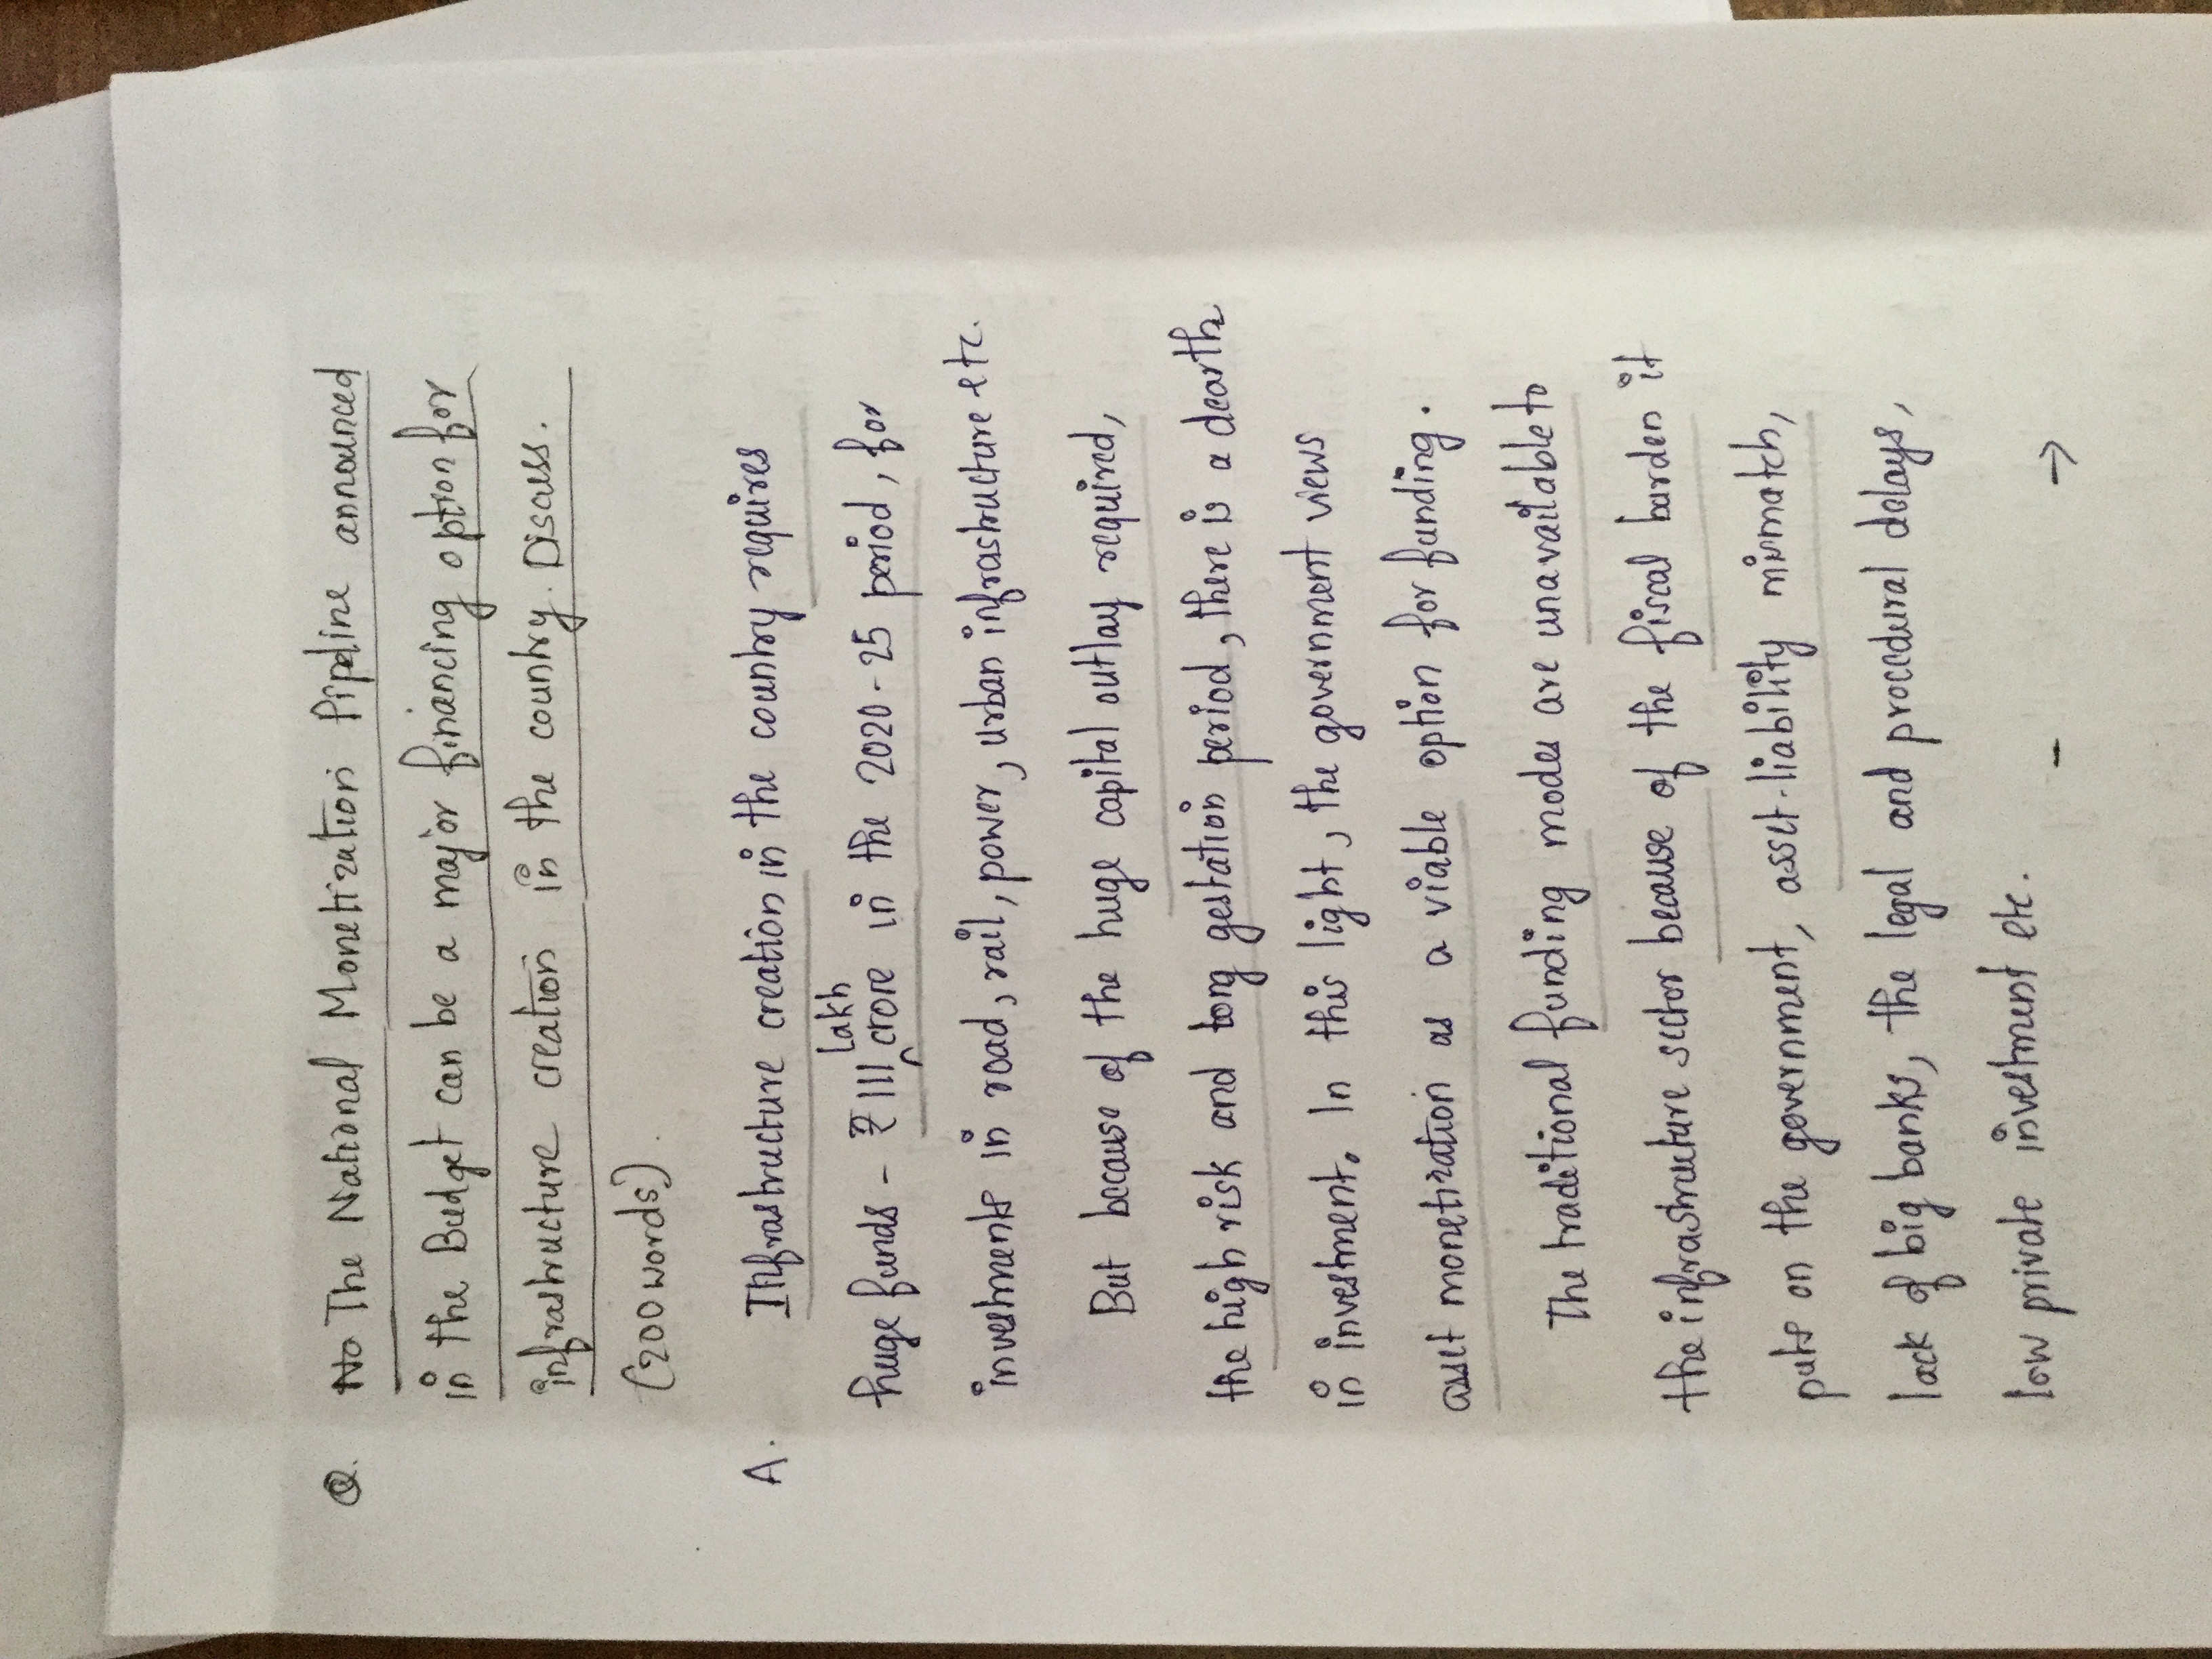 Q. No The National Monetization Pipeline announced
in the Budget can be a major financing option for
infrastructure creation in the country. Discuss.
(200 words)
A. Infrastructure creation in the country requires
huge funds - ₹ 111 Lakh crore in the 2020-25 period, for
investments in road, rail, power, urban infrastructure etc.
But because of the huge capital outlay required,
the high risk and long gestation period, there is a dearth
in investment. In this light, the government views
asset monetization as a viable option for funding.
The traditional funding modes are unavailable to
the infrastructure sector because of the fiscal burden it
puts on the government, asset-liability mismatch,
lack of big banks, the legal and procedural delays,
low private investment etc. - →